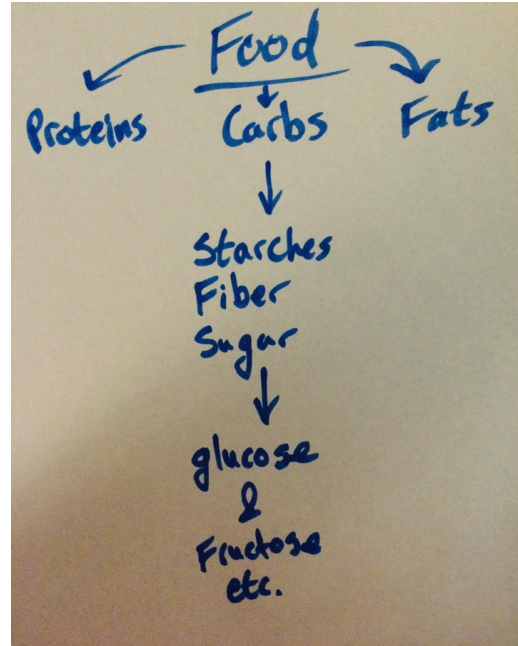 Food
Proteins Carbs Fats
Starches
Fiber
Sugar
glucose
&
Fructose
etc.